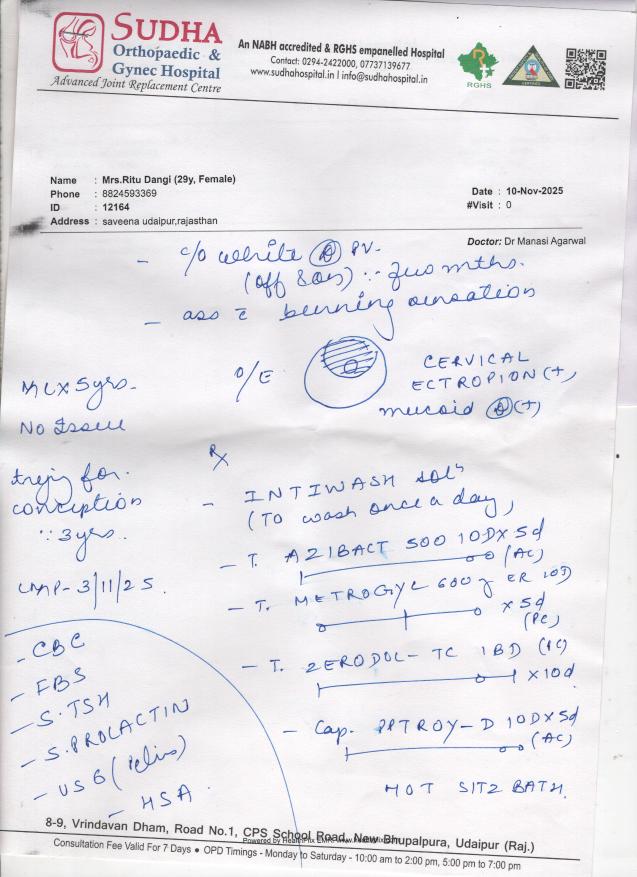 SUDHA
Orthopaedic &
Gynec Hospital
Advanced Joint Replacement Centre
An NABH accredited & RGHS empanelled Hospital
Contact: 0294-2422000, 07737139677
www.sudhahospital.in I info@sudhahospital.in
RGHS
Name : Mrs.Ritu Dangi (29y, Female)
Phone : 8824593369
ID : 12164
Address : saveena udaipur,rajasthan
Date : 10-Nov-2025
#Visit : 0
Doctor: Dr Manasi Agarwal
- c/o white D PV.
(off & on) mths.
- ass c burning sensation
O/E
CERVICAL
ECTROPION (+)
mucoid D (+)
5yrs.
No Issue
trying for
conception
∵ 3 yrs.
LMP - 3/11/25.
Rx
- INTIWASH solⁿ
(To wash once a day)
- T. AZIBACT 500 1OD X 5d
(AC)
- T. METROGYL 600 ER 1OD
X 5d
(PC)
- T. ZERODOL-TC 1BD (PC)
X 10d
- Cap. PPTROY-D 1OD X 5d
(AC)
HOT SITZ BATH.
- CBC
- FBS
- S.TSH
- S.PROLACTIN
- USG (Pelvis)
- HSA
8-9, Vrindavan Dham, Road No.1, CPS School Road, New Bhupalpura, Udaipur (Raj.)
Consultation Fee Valid For 7 Days ● OPD Timings - Monday to Saturday - 10:00 am to 2:00 pm, 5:00 pm to 7:00 pm